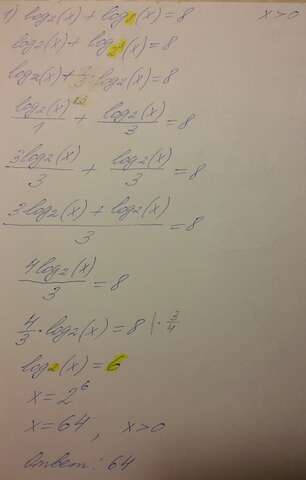 1) log₂(x) + log₁(x) = 8 x>0
log₂(x) + log₂³(x) = 8
log₂(x) + 3·log₂(x) = 8
log₂(x)/1 + log₂(x)/3 = 8
3log₂(x)/3 + log₂(x)/3 = 8
(3log₂(x) + log₂(x))/3 = 8
4log₂(x)/3 = 8
4/3 · log₂(x) = 8 |· 3/4
log₂(x) = 6
x = 2⁶
x = 64, x>0
Ответ: 64